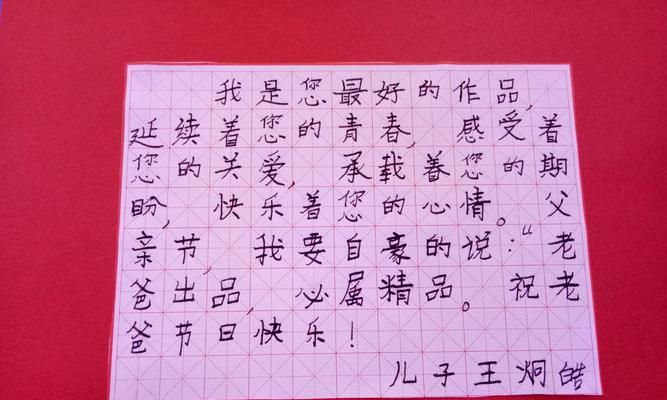 我是您最好的作品,
延续着您的青春,感受着
您的关爱,承载着您的期
盼,快乐着您的心情。父
亲节,我要自豪的说:“老
爸出品,必属精品。祝老
爸节日快乐!
儿子王炯皓